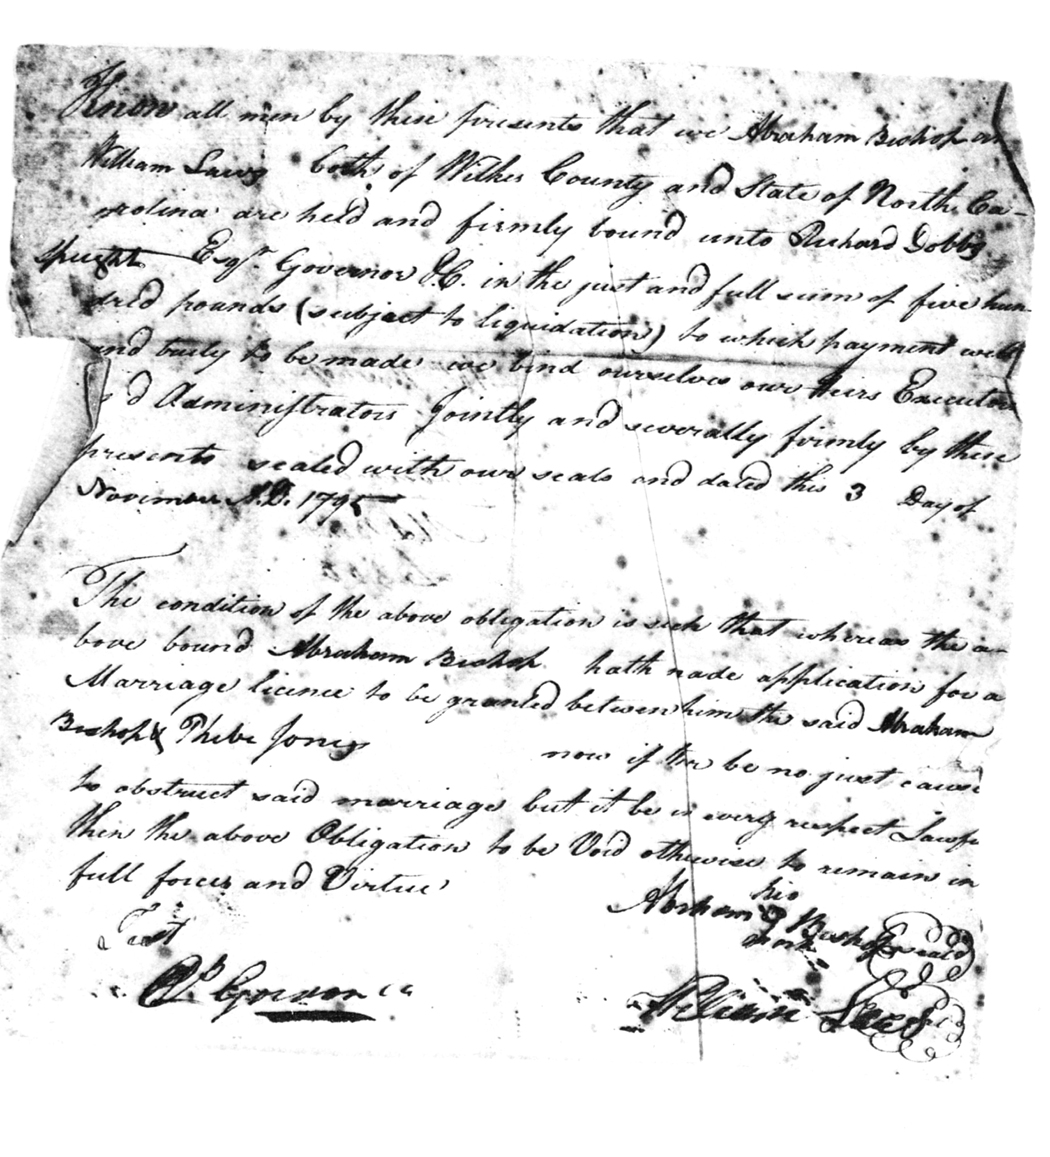 Know all men by these presents that we Abraham Bishop an
William Laws both of Wilkes County and State of North Ca-
rolina are held and firmly bound unto Richard Dobbs
Speight Esqr Governor &C. in the just and full sum of five hun-
dred pounds (subject to liquidation) to which payment well
and truly to be made we bind ourselves our Heirs Executors
d Administrators Jointly and severally firmly by these
presents sealed with our seals and dated this 3 Day of
November A.D. 1795
The condition of the above obligation is such that whereas the a-
bove bound Abraham Bishop hath made application for a
Marriage licence to be granted between him the said Abraham
Bishop & Phebe Jones
now if ther be no just cause
to obstruct said marriage but it be in every respect Lawfu
then the above Obligation to be Void otherwise to remain in
full force and Virtue
his
Test Abraham Bishop seald
mark
Gordon CC William Laws